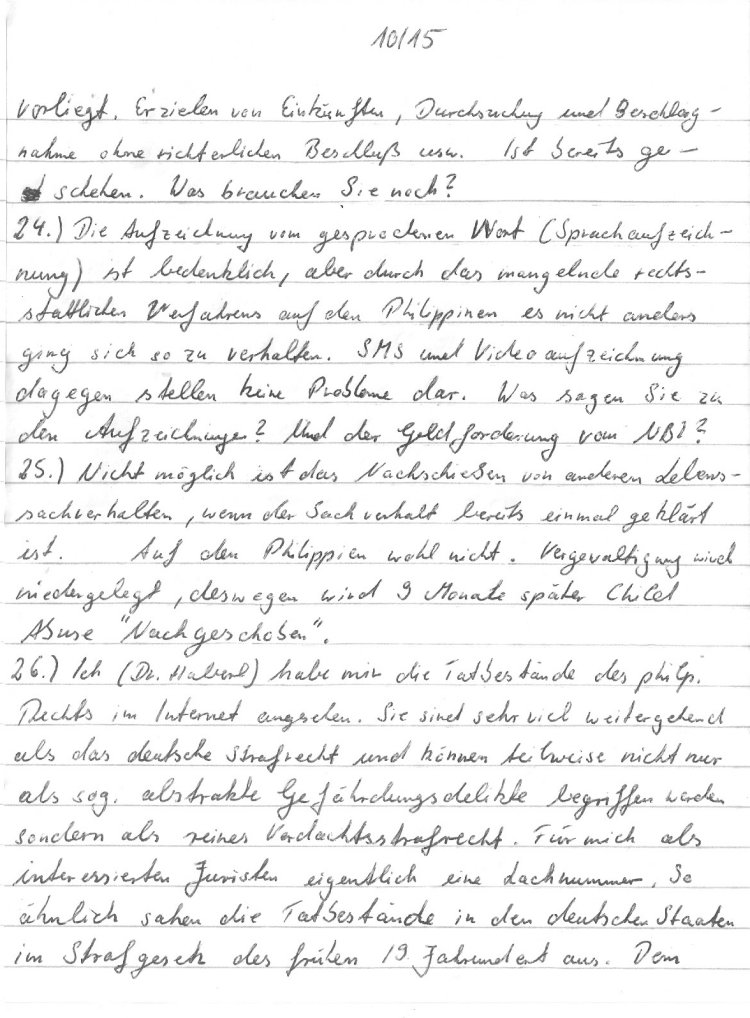 10/15
vorliegt. Erzielen von Einkünften, Durchsuchung und Beschlag-
nahme ohne richterlichen Beschluß usw. Ist bereits ge-
schehen. Was brauchen Sie noch?
24.) Die Aufzeichnung vom gesprochenen Wort (Sprachaufzeich-
nung) ist bedenklich, aber durch das mangelnde rechts-
stattlichen Verfahrens auf den Philippinen es nicht anders
ging sich so zu verhalten. SMS und Videoaufzeichnung
dagegen stellen keine Probleme dar. Was sagen Sie zu
den Aufzeichnungen? Und der Geldforderung vom NBI?
25.) Nicht möglich ist das Nachschießen von anderen Lebens-
sachverhalten, wenn der Sachverhalt bereits einmal geklärt
ist. Auf den Philippien wohl nicht. Vergewaltigung wird
niedergelegt, deswegen wird 9 Monate später Child
Abuse "Nachgeschoben".
26.) Ich (Dr. Haberl) habe mir die Tatbestände des philp.
Rechts im Internet angesehen. Sie sind sehr viel weitergehend
als das deutsche Strafrecht und können teilweise nicht nur
als sog. abstrakte Gefährdungsdelikte begriffen werden
sondern als reines Verdachtsstrafrecht. Für mich als
interessierten Juristen eigentlich eine Lachnummer. So
ähnlich sahen die Tatbestände in den deutschen Staaten
im Strafgesetz des frühen 19. Jahrundert aus. Dem